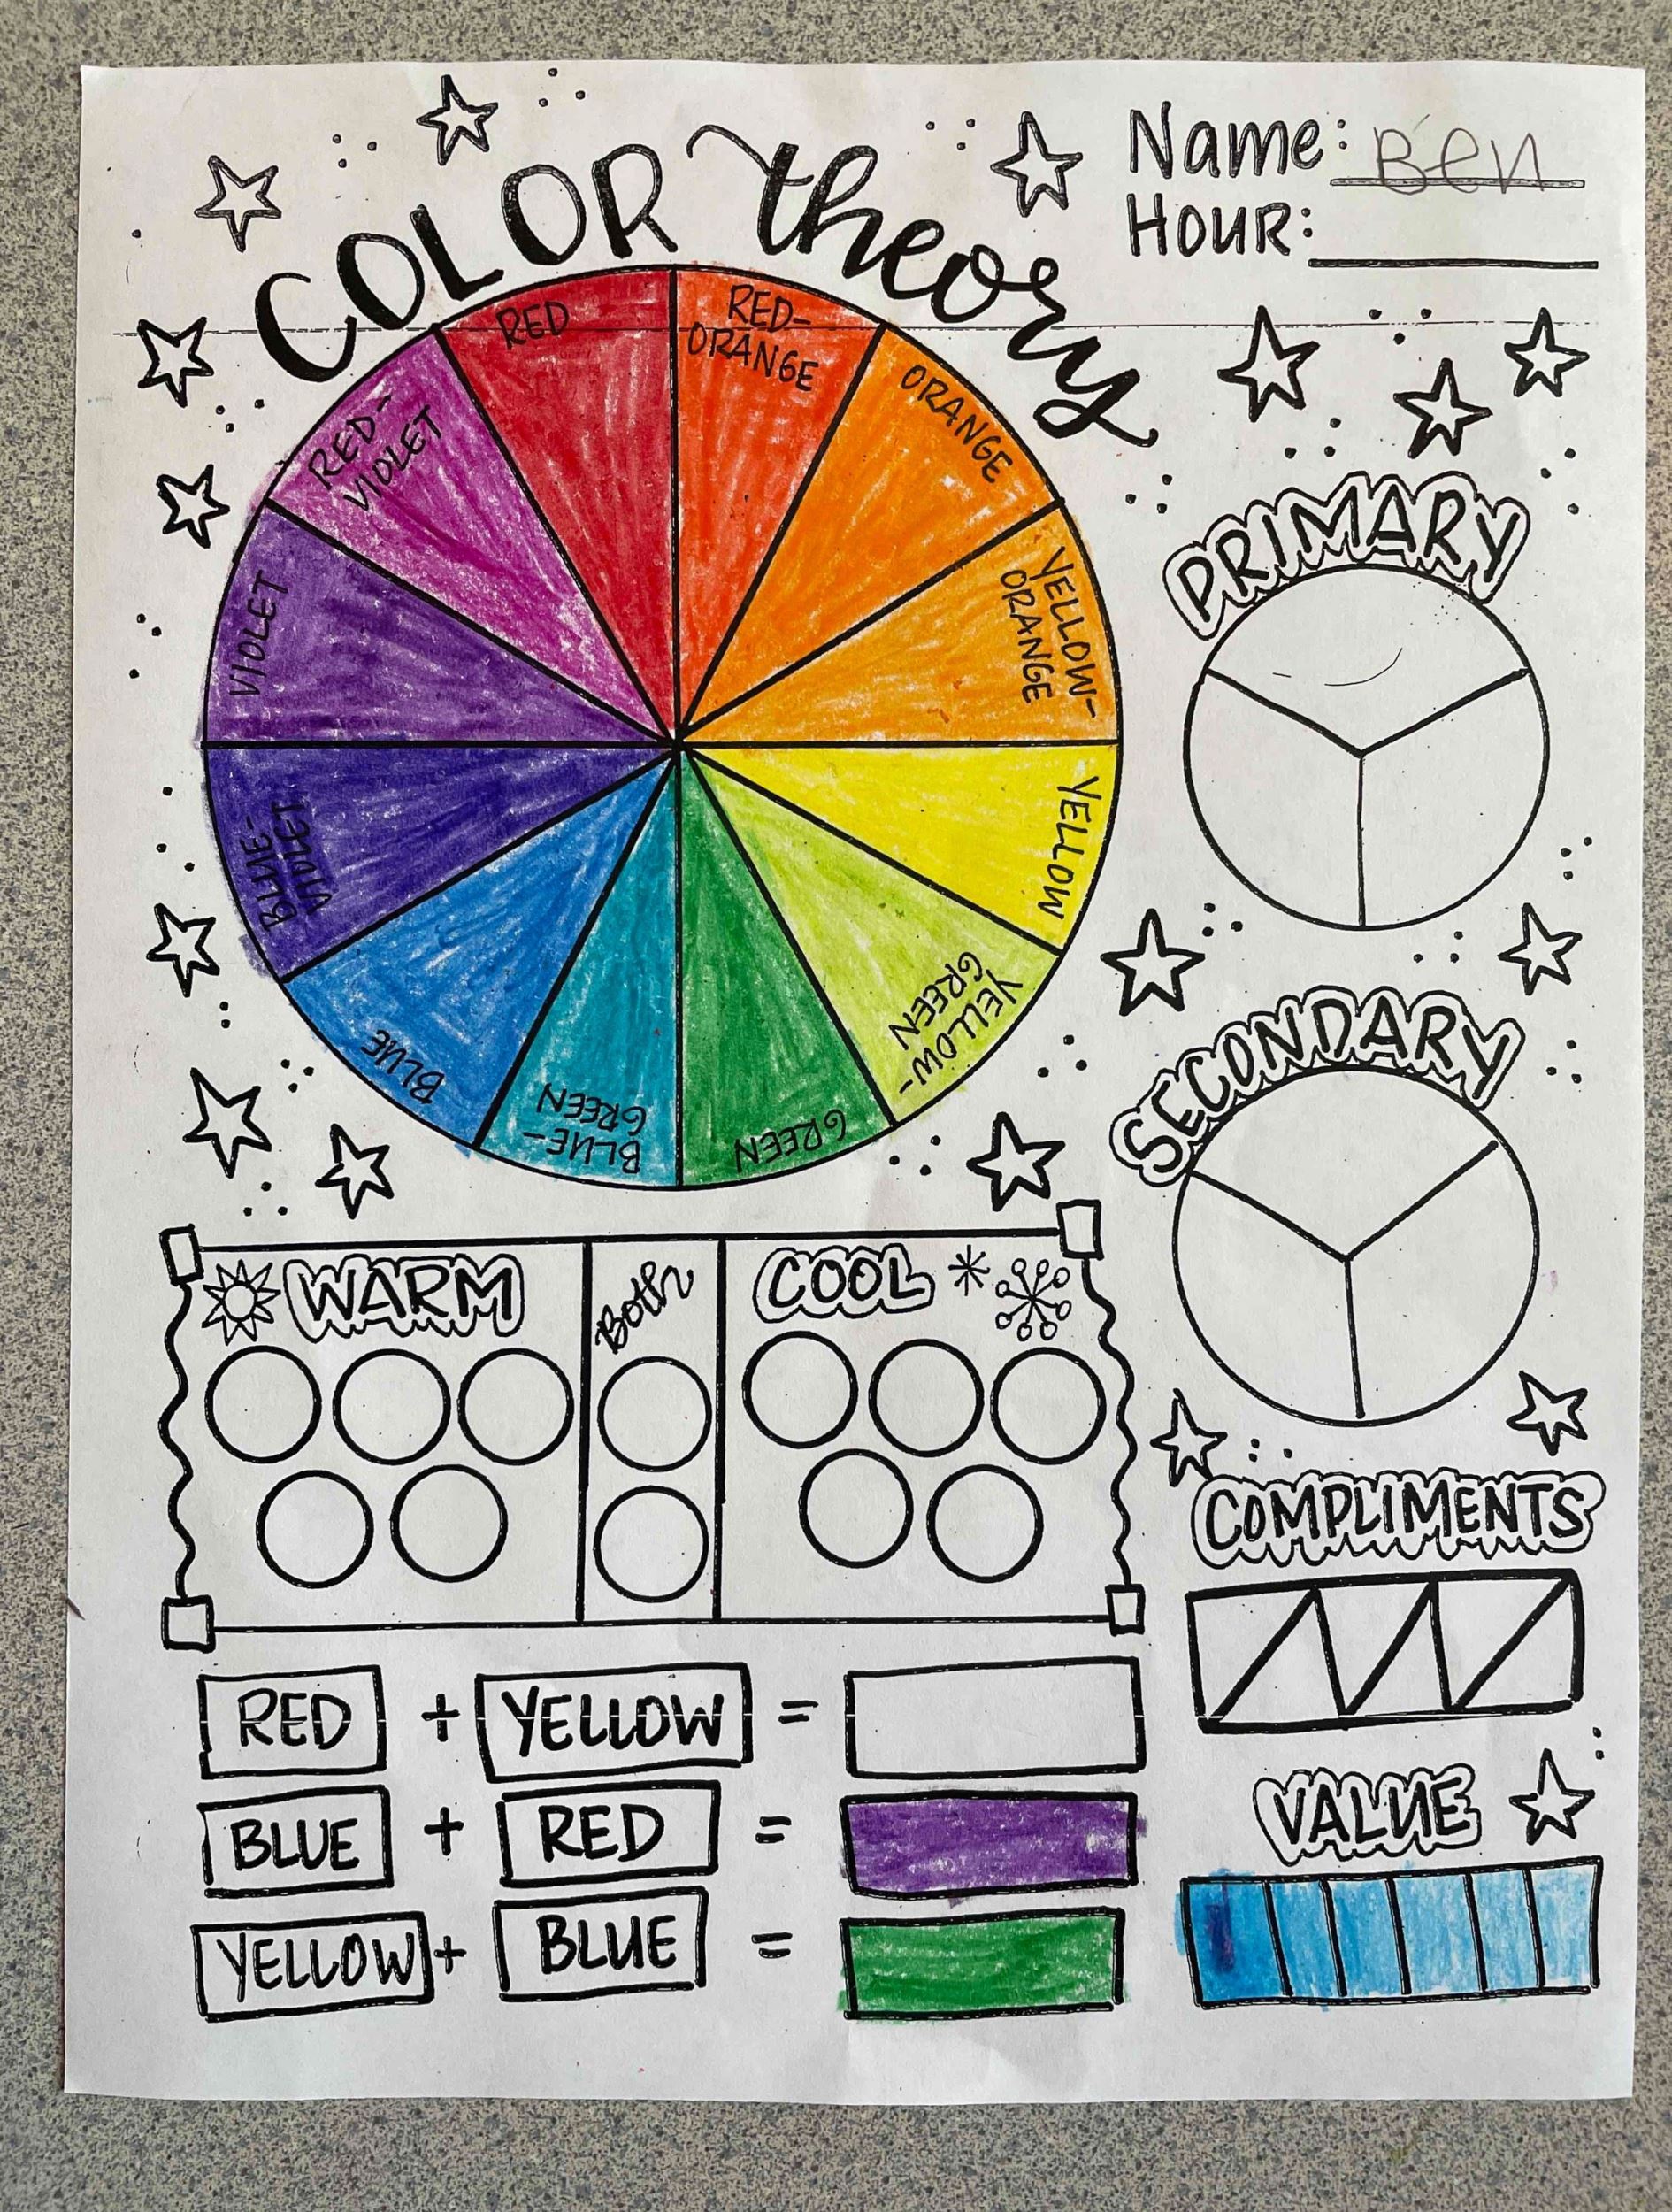 COLOR theory
Name: Ben
HOUR:
RED
RED-
ORANGE
ORANGE
YELLOW-
ORANGE
YELLOW
YELLOW-
GREEN
GREEN
BLUE-
GREEN
BLUE
BLUE-
VIOLET
VIOLET
RED-
VIOLET
PRIMARY
SECONDARY
WARM
Both
COOL
COMPLIMENTS
RED + YELLOW =
BLUE + RED =
YELLOW + BLUE =
VALUE